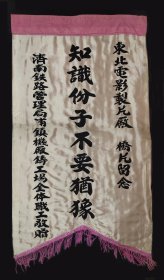 東北電影製片廠 橋片留念
知識份子不要猶豫
濟南鉄路管理局甫鎮機廠鑄工場全体職工敬贈